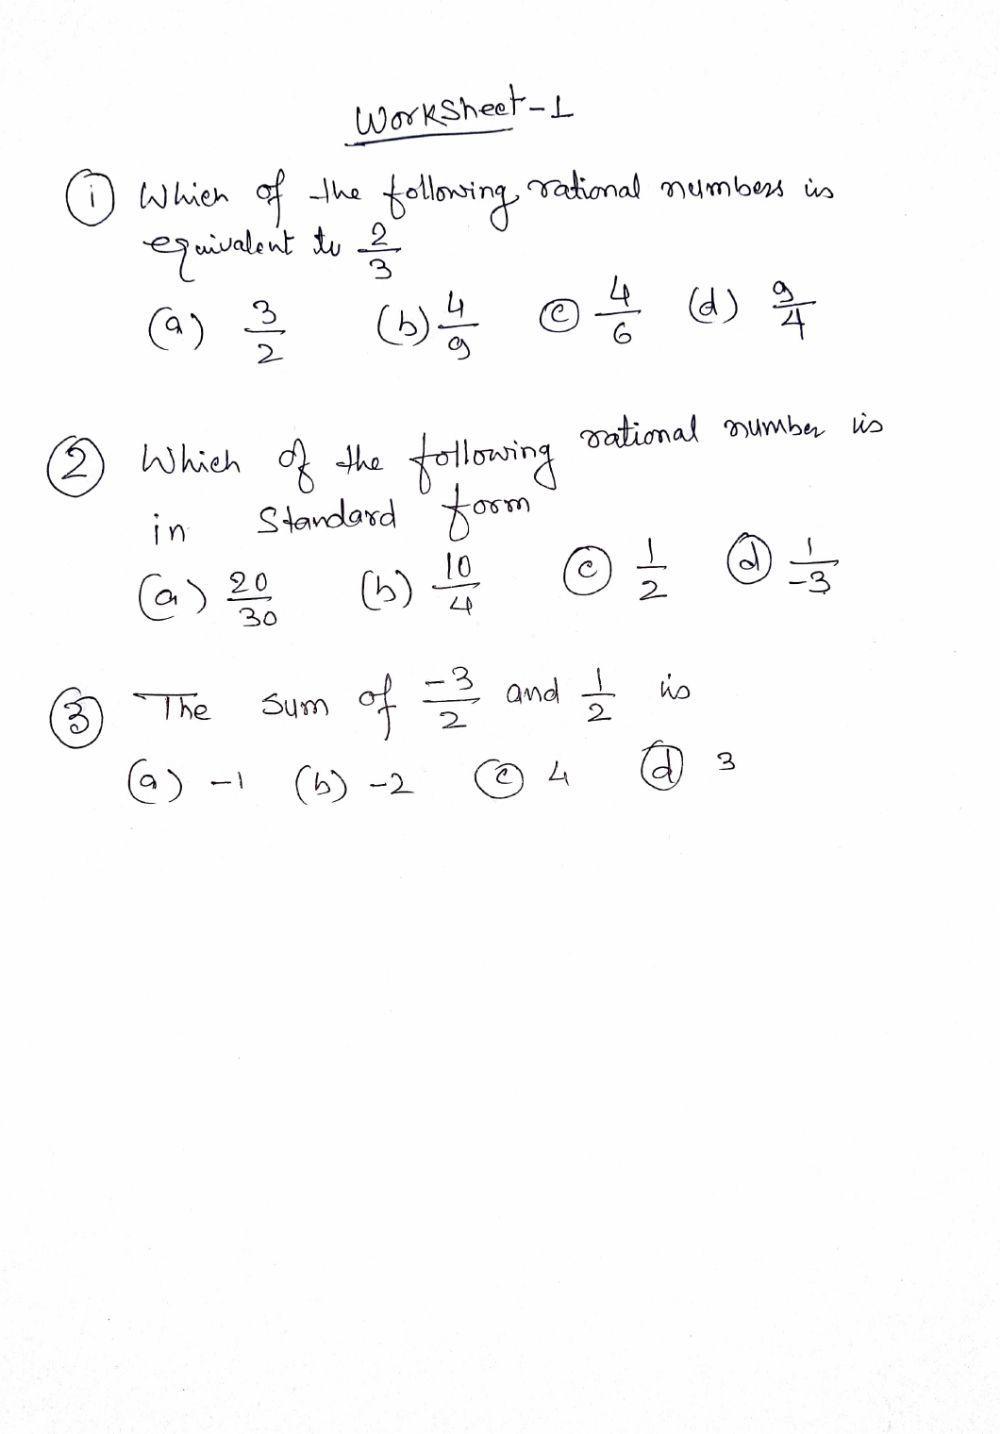 Worksheet-1
① Which of the following rational numbers is
equivalent to 2/3
(a) 3/2 (b) 4/9 ⓒ 4/6 (d) 9/4
② Which of the following rational number is
in Standard form
(a) 20/30 (b) 10/4 ⓒ 1/2 ⓓ 1/-3
③ The sum of -3/2 and 1/2 is
(a) -1 (b) -2 ⓒ 4 ⓓ 3